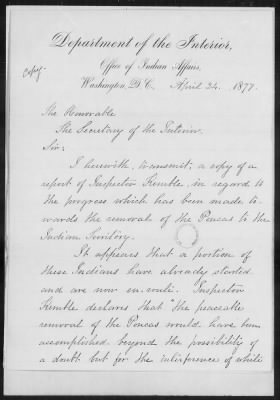 Department of the Interior,
Office of Indian Affairs,
Copy.
Washington, D.C., April 24, 1877.
The Honorable
The Secretary of the Interior.
Sir:
I herewith transmit, a copy of a
report of Inspector Kemble in regard to
the progress which has been made to-
wards the removal of the Poncas to the
Indian Territory.
It appears that a portion of
these Indians have already started
and are now en-route. Inspector
Kemble declares that "the peaceable
removal of the Poncas would have been
accomplished beyond the possibility of
a doubt but for the interference of white